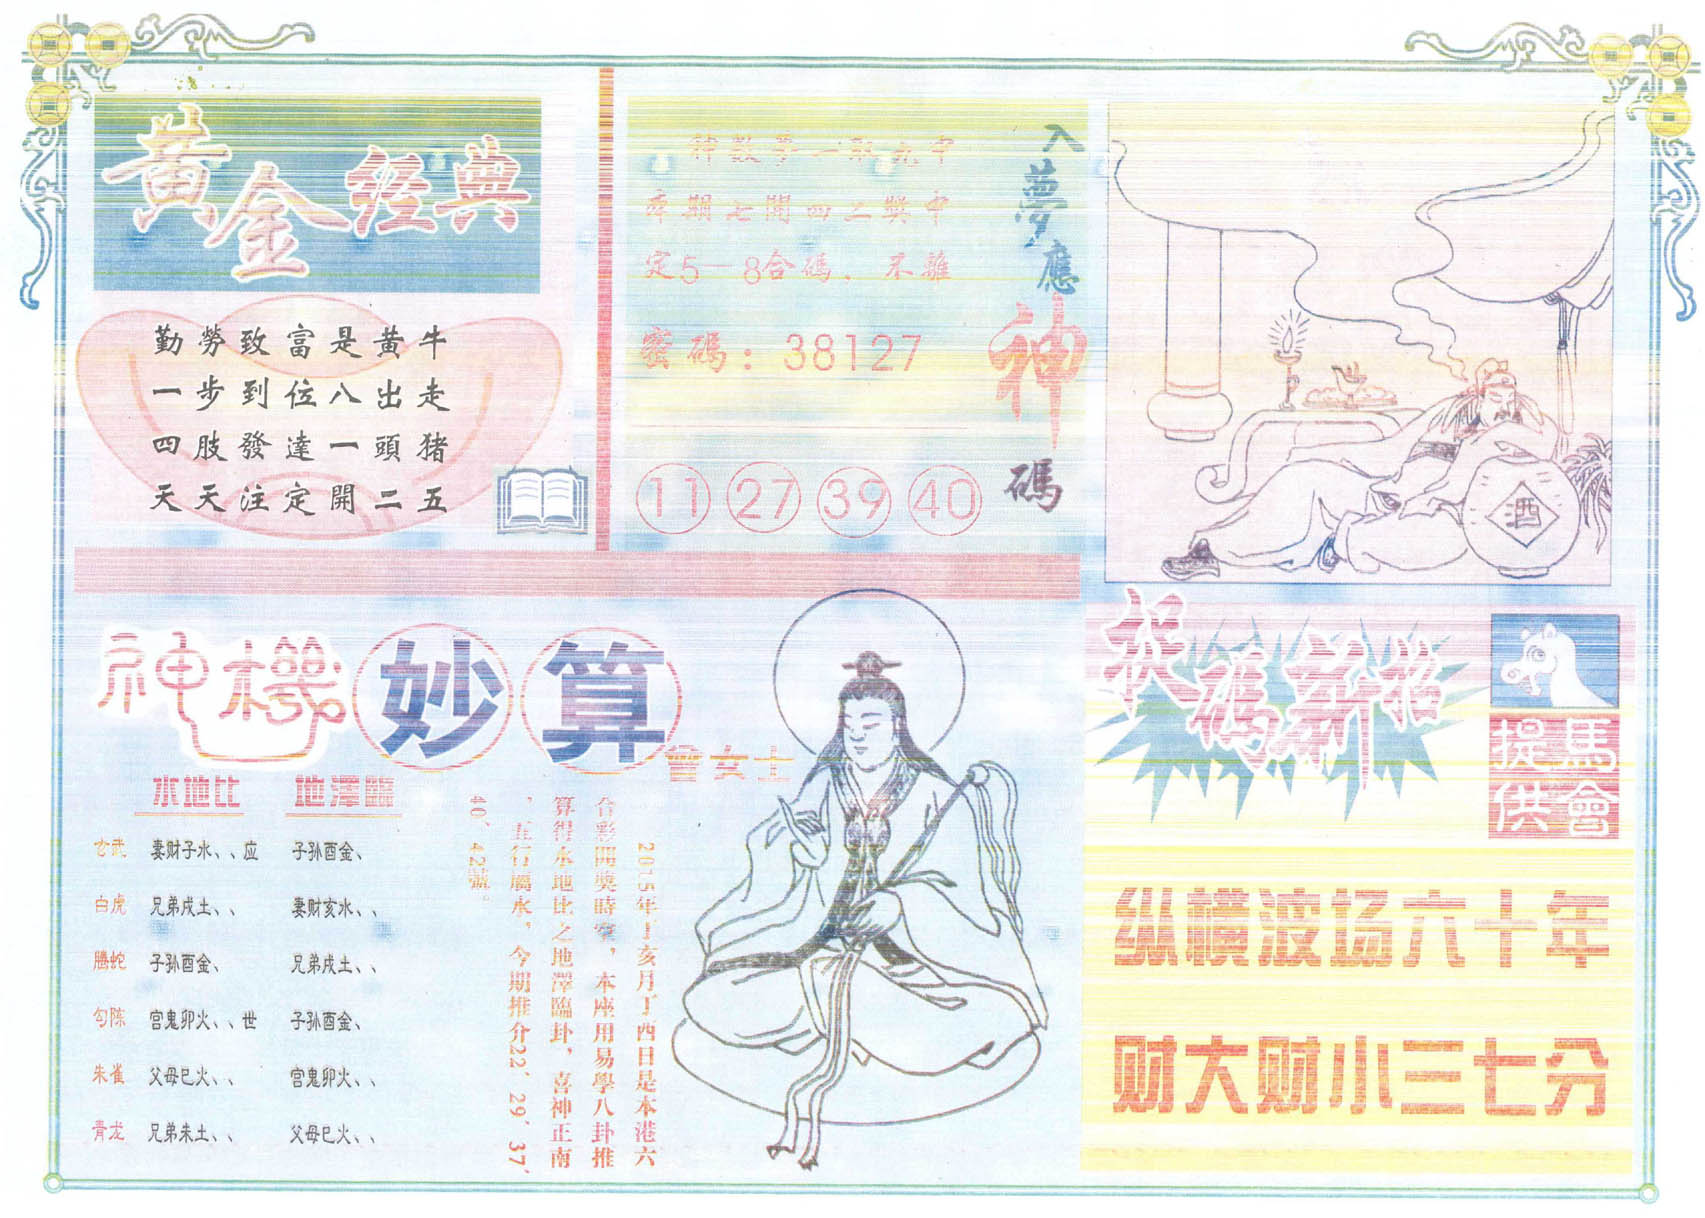 黃金经典
勤勞致富是黃牛
一步到位八出走
四肢發達一頭猪
天天注定開二五
入夢應神碼
神數夢一
本期七開四二獎中
定5—8合碼、不離
密碼：38127
11 27 39 40
酒
神機妙算
曾女士
水地比 地澤臨
玄武 妻财子水、、应 子孙酉金、
白虎 兄弟戌土、、 妻财亥水、、
腾蛇 子孙酉金、 兄弟戌土、、
勾陈 宫鬼卯火、、世 子孙酉金、
朱雀 父母巳火、、 宫鬼卯火、、
青龙 兄弟未土、、 父母巳火、、
2015年丁亥月丁酉日是本港六
合彩開獎時空，本座用易學八卦推
算得水地比之地澤臨卦，喜神正南
，五行屬水，今期推介22、29、37、
40、42號。
捉碼新招
馬會
提供
纵横波场六十年
财大财小三七分